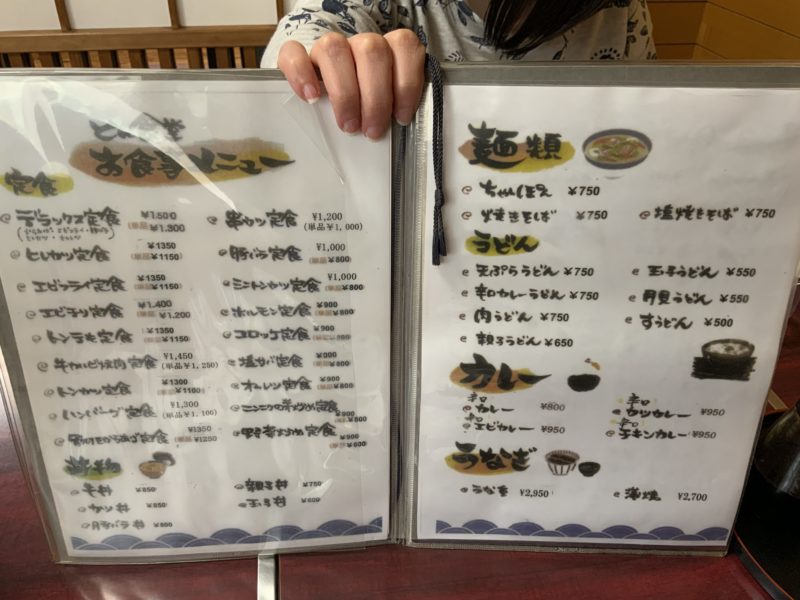 お食事メニュー
定食
デラックス定食 ¥1500
(単品 ¥1,300
ヒレカツ定食 ¥1350
単品¥1150
エビフライ定食 ¥1350
単品¥1150
エビチリ定食 ¥1.400
単品¥1.200
トンテキ定食 ¥1350
単品¥1150
牛カルビ焼肉定食 ¥1,450
(単品¥1,250
トンカツ定食 ¥1300
単品¥1100
ハンバーグ定食 ¥1,300
(単品¥1,100)
定食 ¥1350
単品¥1250
串カツ定食 ¥1,200
(単品¥1,000)
豚バラ定食 ¥1,000
単品¥800
ミニトンカツ定食 ¥1,000
単品¥800
ホルモン定食 ¥900
単品¥800
コロッケ定食 ¥900
塩サバ定食 ¥900
単品¥800
オムレツ定食 ¥900
単品¥800
ニンニクの芽炒め定食 ¥900
単品¥800
野菜炒め定食 ¥900
単品¥800
丼物
牛丼 ¥850
カツ丼 ¥850
豚バラ丼 ¥800
親子丼 ¥750
玉子丼 ¥600
麺類
ちゃんぽん ¥750
焼きそば ¥750
塩焼きそば ¥750
うどん
天ぷらうどん ¥750
玉子うどん ¥550
辛口カレーうどん ¥750
月見うどん ¥550
肉うどん ¥750
すうどん ¥500
親子うどん ¥650
カレー
辛口
カレー ¥800
辛口
カツカレー ¥950
辛口
エビカレー ¥950
辛口
チキンカレー ¥950
うなぎ
うな重 ¥2,950
蒲焼 ¥2,700